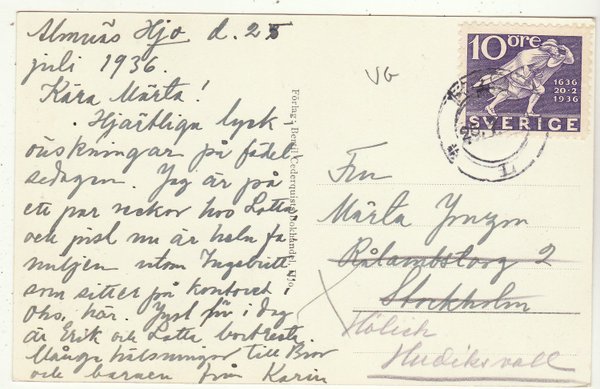 Almnäs Hjo d. 25
juli 1936.
Kära Märta!
Hjärtliga lyck
önskningar på födel
sedagen. Jag är på
ett par veckor hos Lotta
och just nu är hela fa
miljen utom Ingabritt
som sitter på kontoret i
här. Just för i dag
är Erik och Lotta bortresta.
Många hälsningar till Bror
och barnen från Karin
VG
Förlag: Bertil Cederquists Bokhandel, Hjo.
10 öre
1636
20-2
1936
SVERIGE
Fru
Märta Jonzon
Rålambstorg 2
Stockholm
Hölick
Hudiksvall